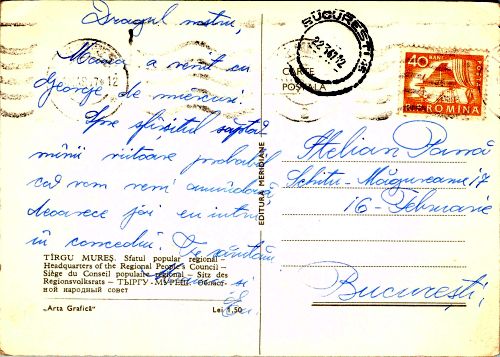 Dragul nostru,
Mama a venit cu
George de miercuri.
Spre sfîrșitul săptă-
mînii viitoare probabil
că vom veni amîndouă
deoarece joi eu intru
în concediu. Te sărutăm
Mama și
TÎRGU MUREȘ. Sfatul popular regional –
Headquarters of the Regional People's Council –
Siège du Conseil populaire régional – Sitz des
Regionsvolksrats – ТЫРГУ-МУРЕШ. Областной народный совет
„Arta Grafică"
Lei 1,50
EDITURA MERIDIANE
CARTE
POȘTALĂ
BUCUREȘTI
40 BANI
ROMINA
Stelian Pană
Schitu-Măgureanu 17
16-Februarie
București,